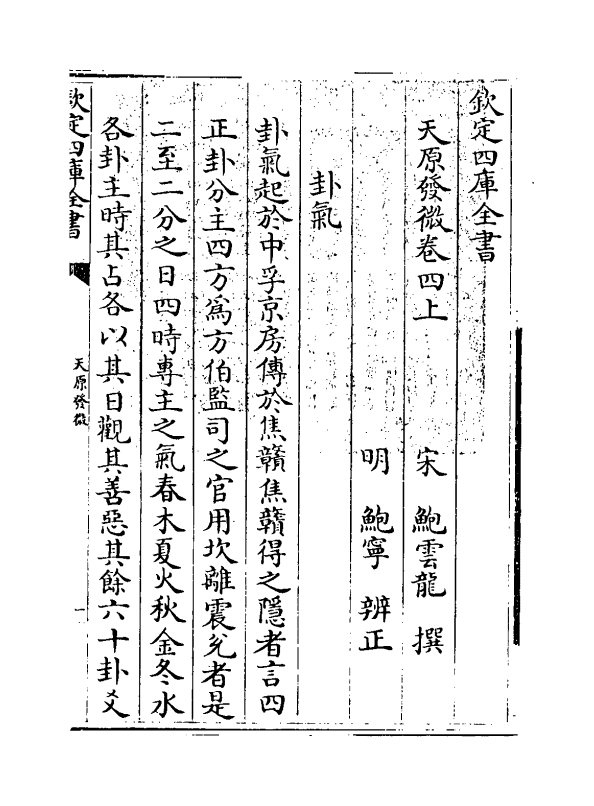 欽定四庫全書
天原發微卷四上
宋 鮑雲龍 撰
明 鮑寧 辨正
卦氣
卦氣起於中孚京房傳於焦贛焦贛得之隱者言四
正卦分主四方為方伯監司之官用坎離震兊者是
二至二分之日四時專主之氣春木夏火秋金冬水
各卦主時其占各以其日觀其善惡其餘六十卦爻
欽定四庫全書
天原發微
一